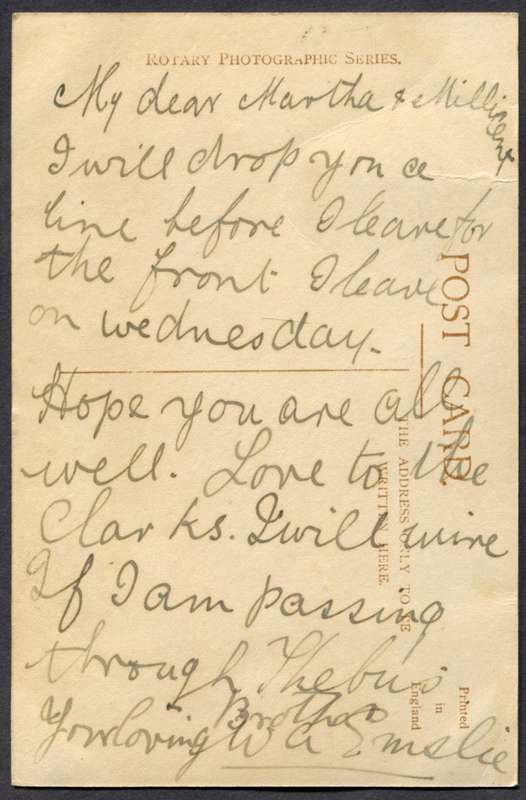 ROTARY PHOTOGRAPHIC SERIES.
My dear Martha & Millicent
I will drop you a
line before I leave for
the front I leave
on wednesday.
Hope you are all
well. Love to the
Clarks. I will wire
If I am passing
through Thebus
Your loving Brother
W A Emslie
POST CARD.
THE ADDRESS ONLY TO BE
WRITTEN HERE.
Printed
in
England